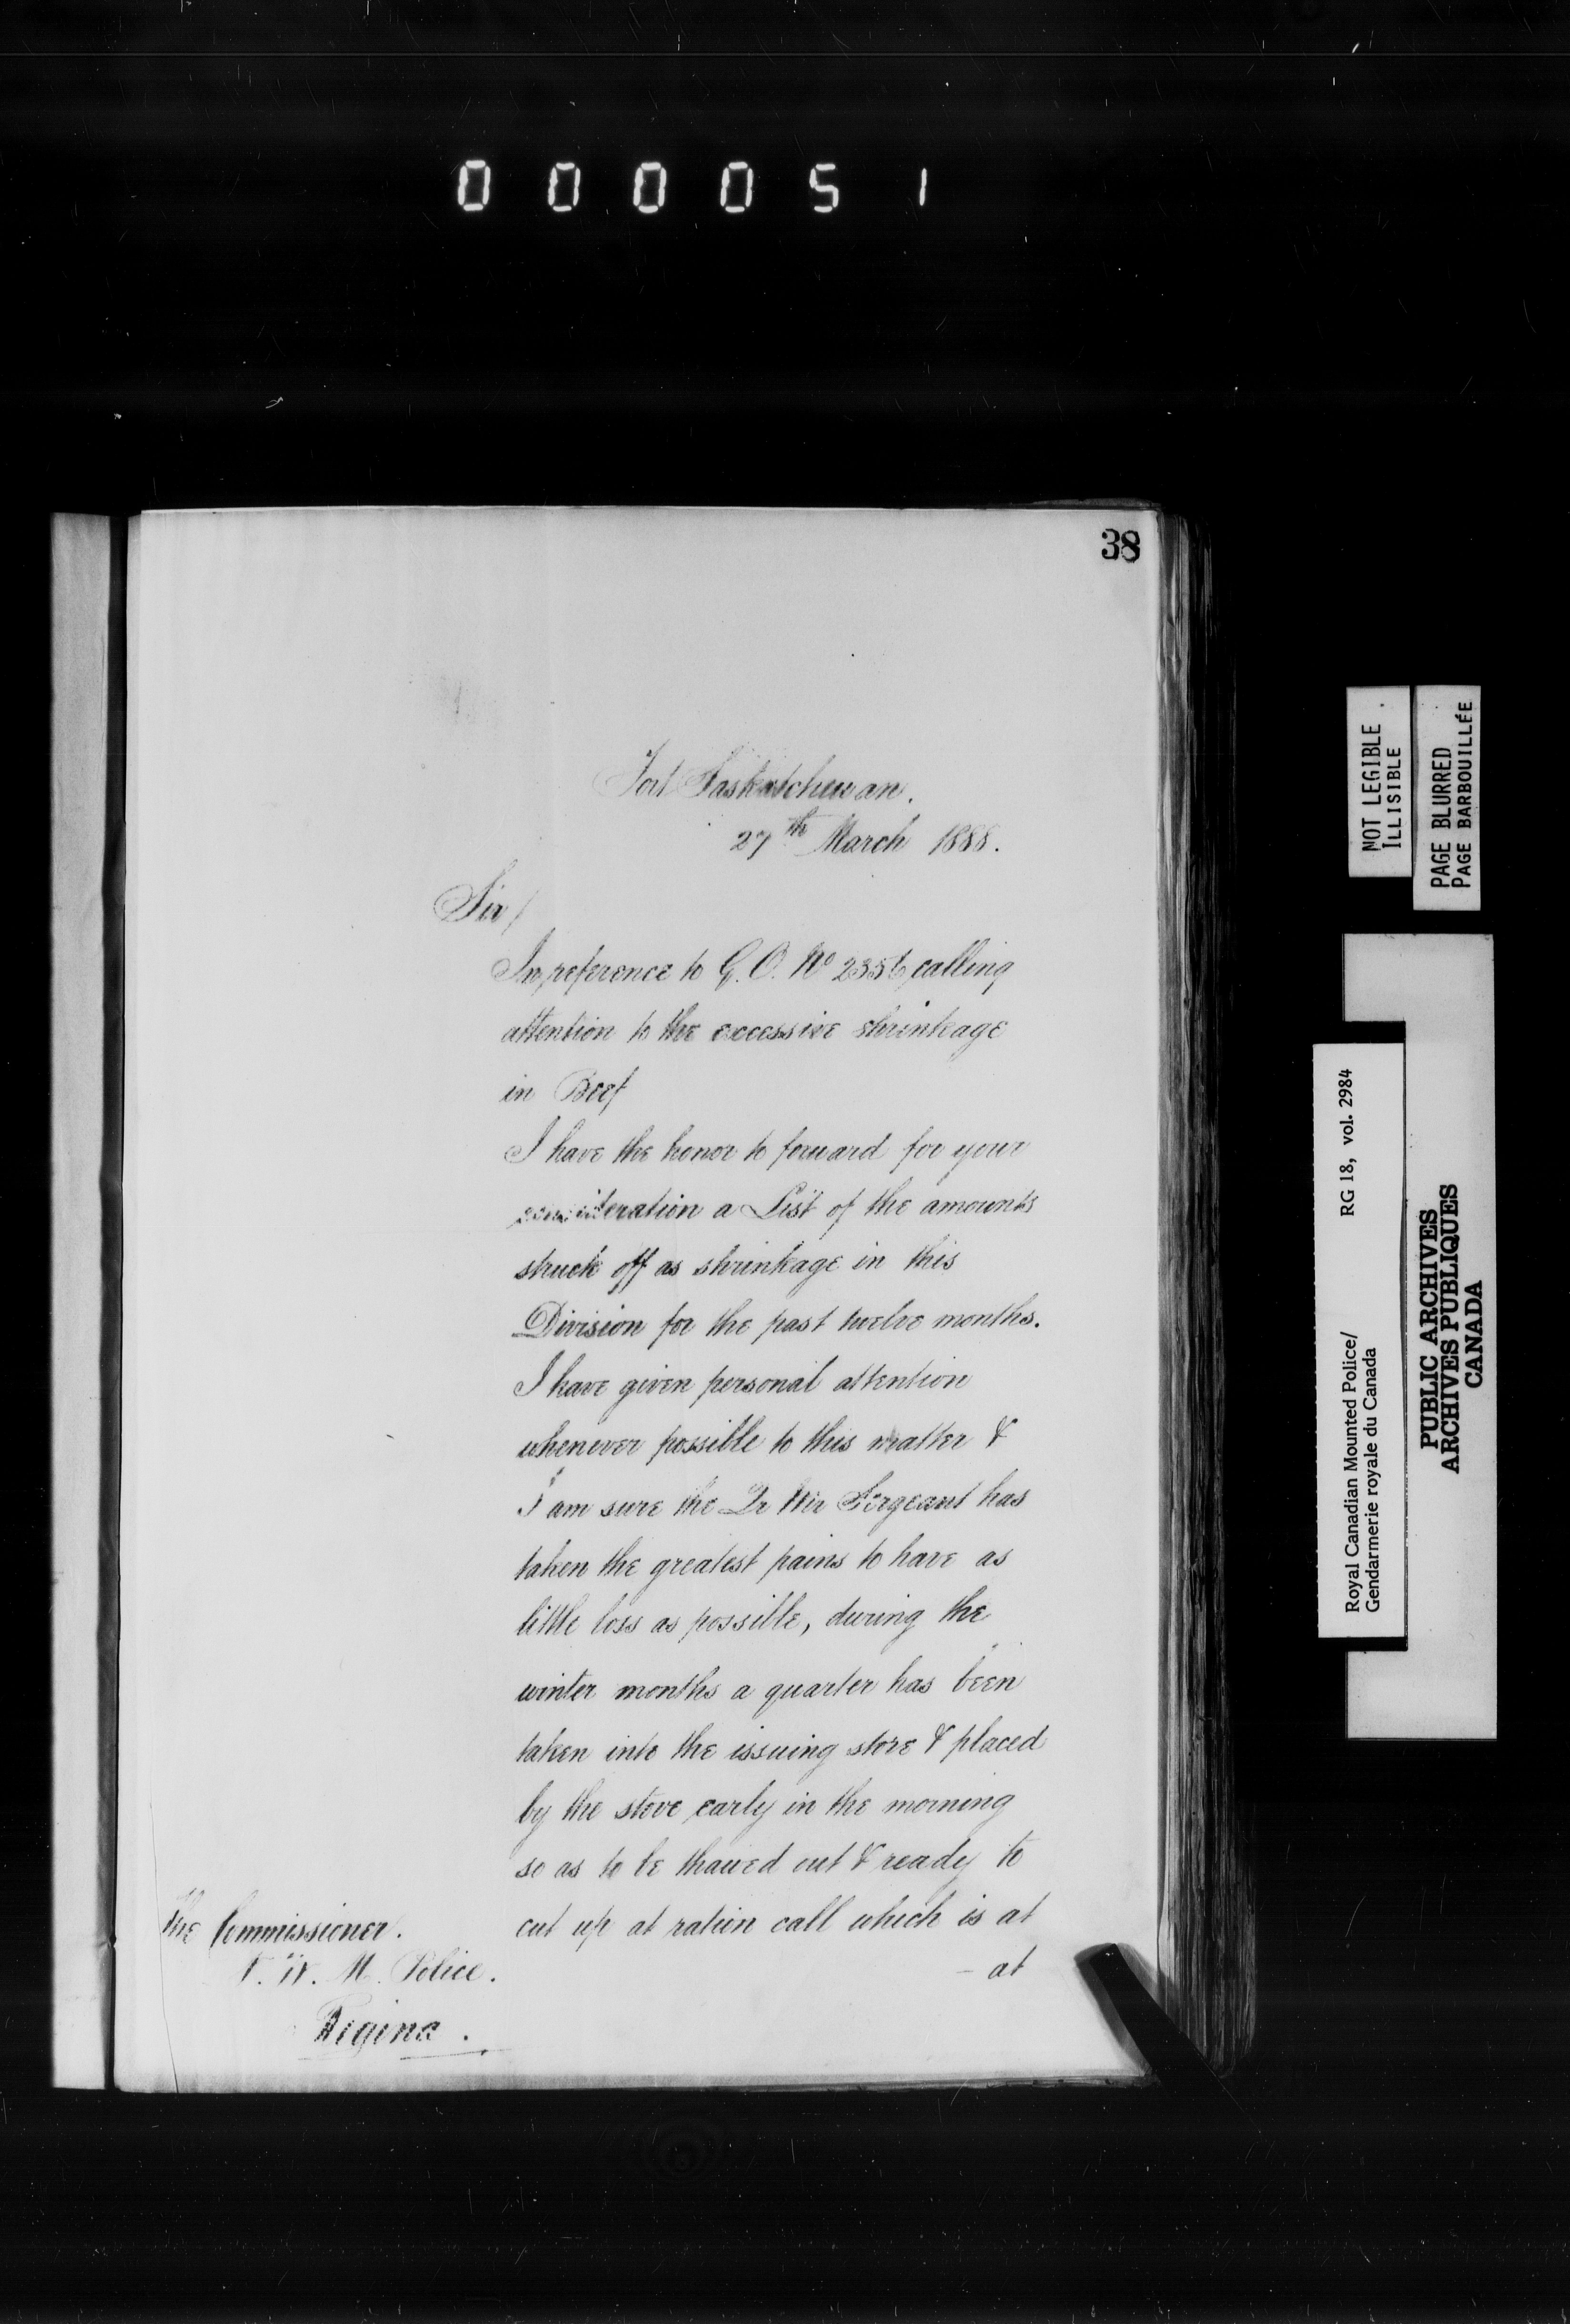 000051
38
Fort Saskatchewan.
27th March 1888.
Sir/
In reference to G.O. No 2356 calling
attention to the excessive shrinkage
in Beef
I have the honor to forward for your
consideration a List of the amounts
struck off as shrinkage in this
Division for the past twelve months.
I have given personal attention
whenever possible to this matter &
I am sure the Qr Mr Sergeant has
taken the greatest pains to have as
little loss as possible, during the
winter months a quarter has been
taken into the issuing store & placed
by the stove early in the morning
so as to be thawed out & ready to
cut up at ration call which is at
- at
The Commissioner.
N. W. M. Police.
Regina.
NOT LEGIBLE
ILLISIBLE
PAGE BLURRED
PAGE BARBOUILLÉE
Royal Canadian Mounted Police/ RG 18, vol. 2984
Gendarmerie royale du Canada
PUBLIC ARCHIVES
ARCHIVES PUBLIQUES
CANADA